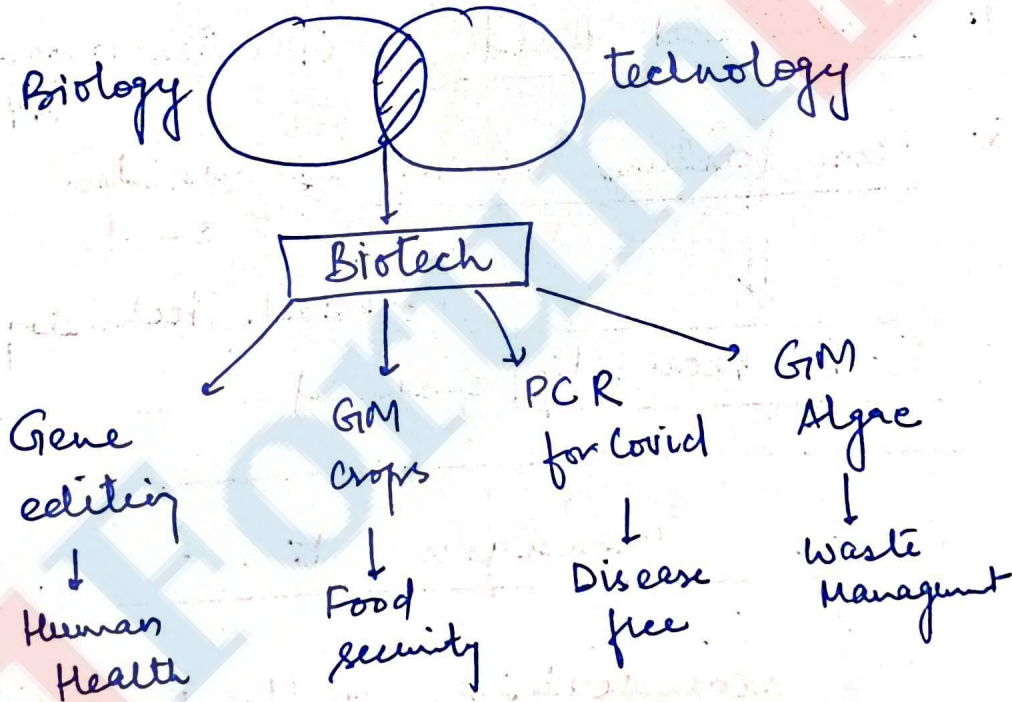 Biology
technology
Biotech
Gene
editing
Human
Health
GM
crops
Food
security
PCR
for Covid
Disease
free
GM
Algae
Waste
Managemnt
Forum